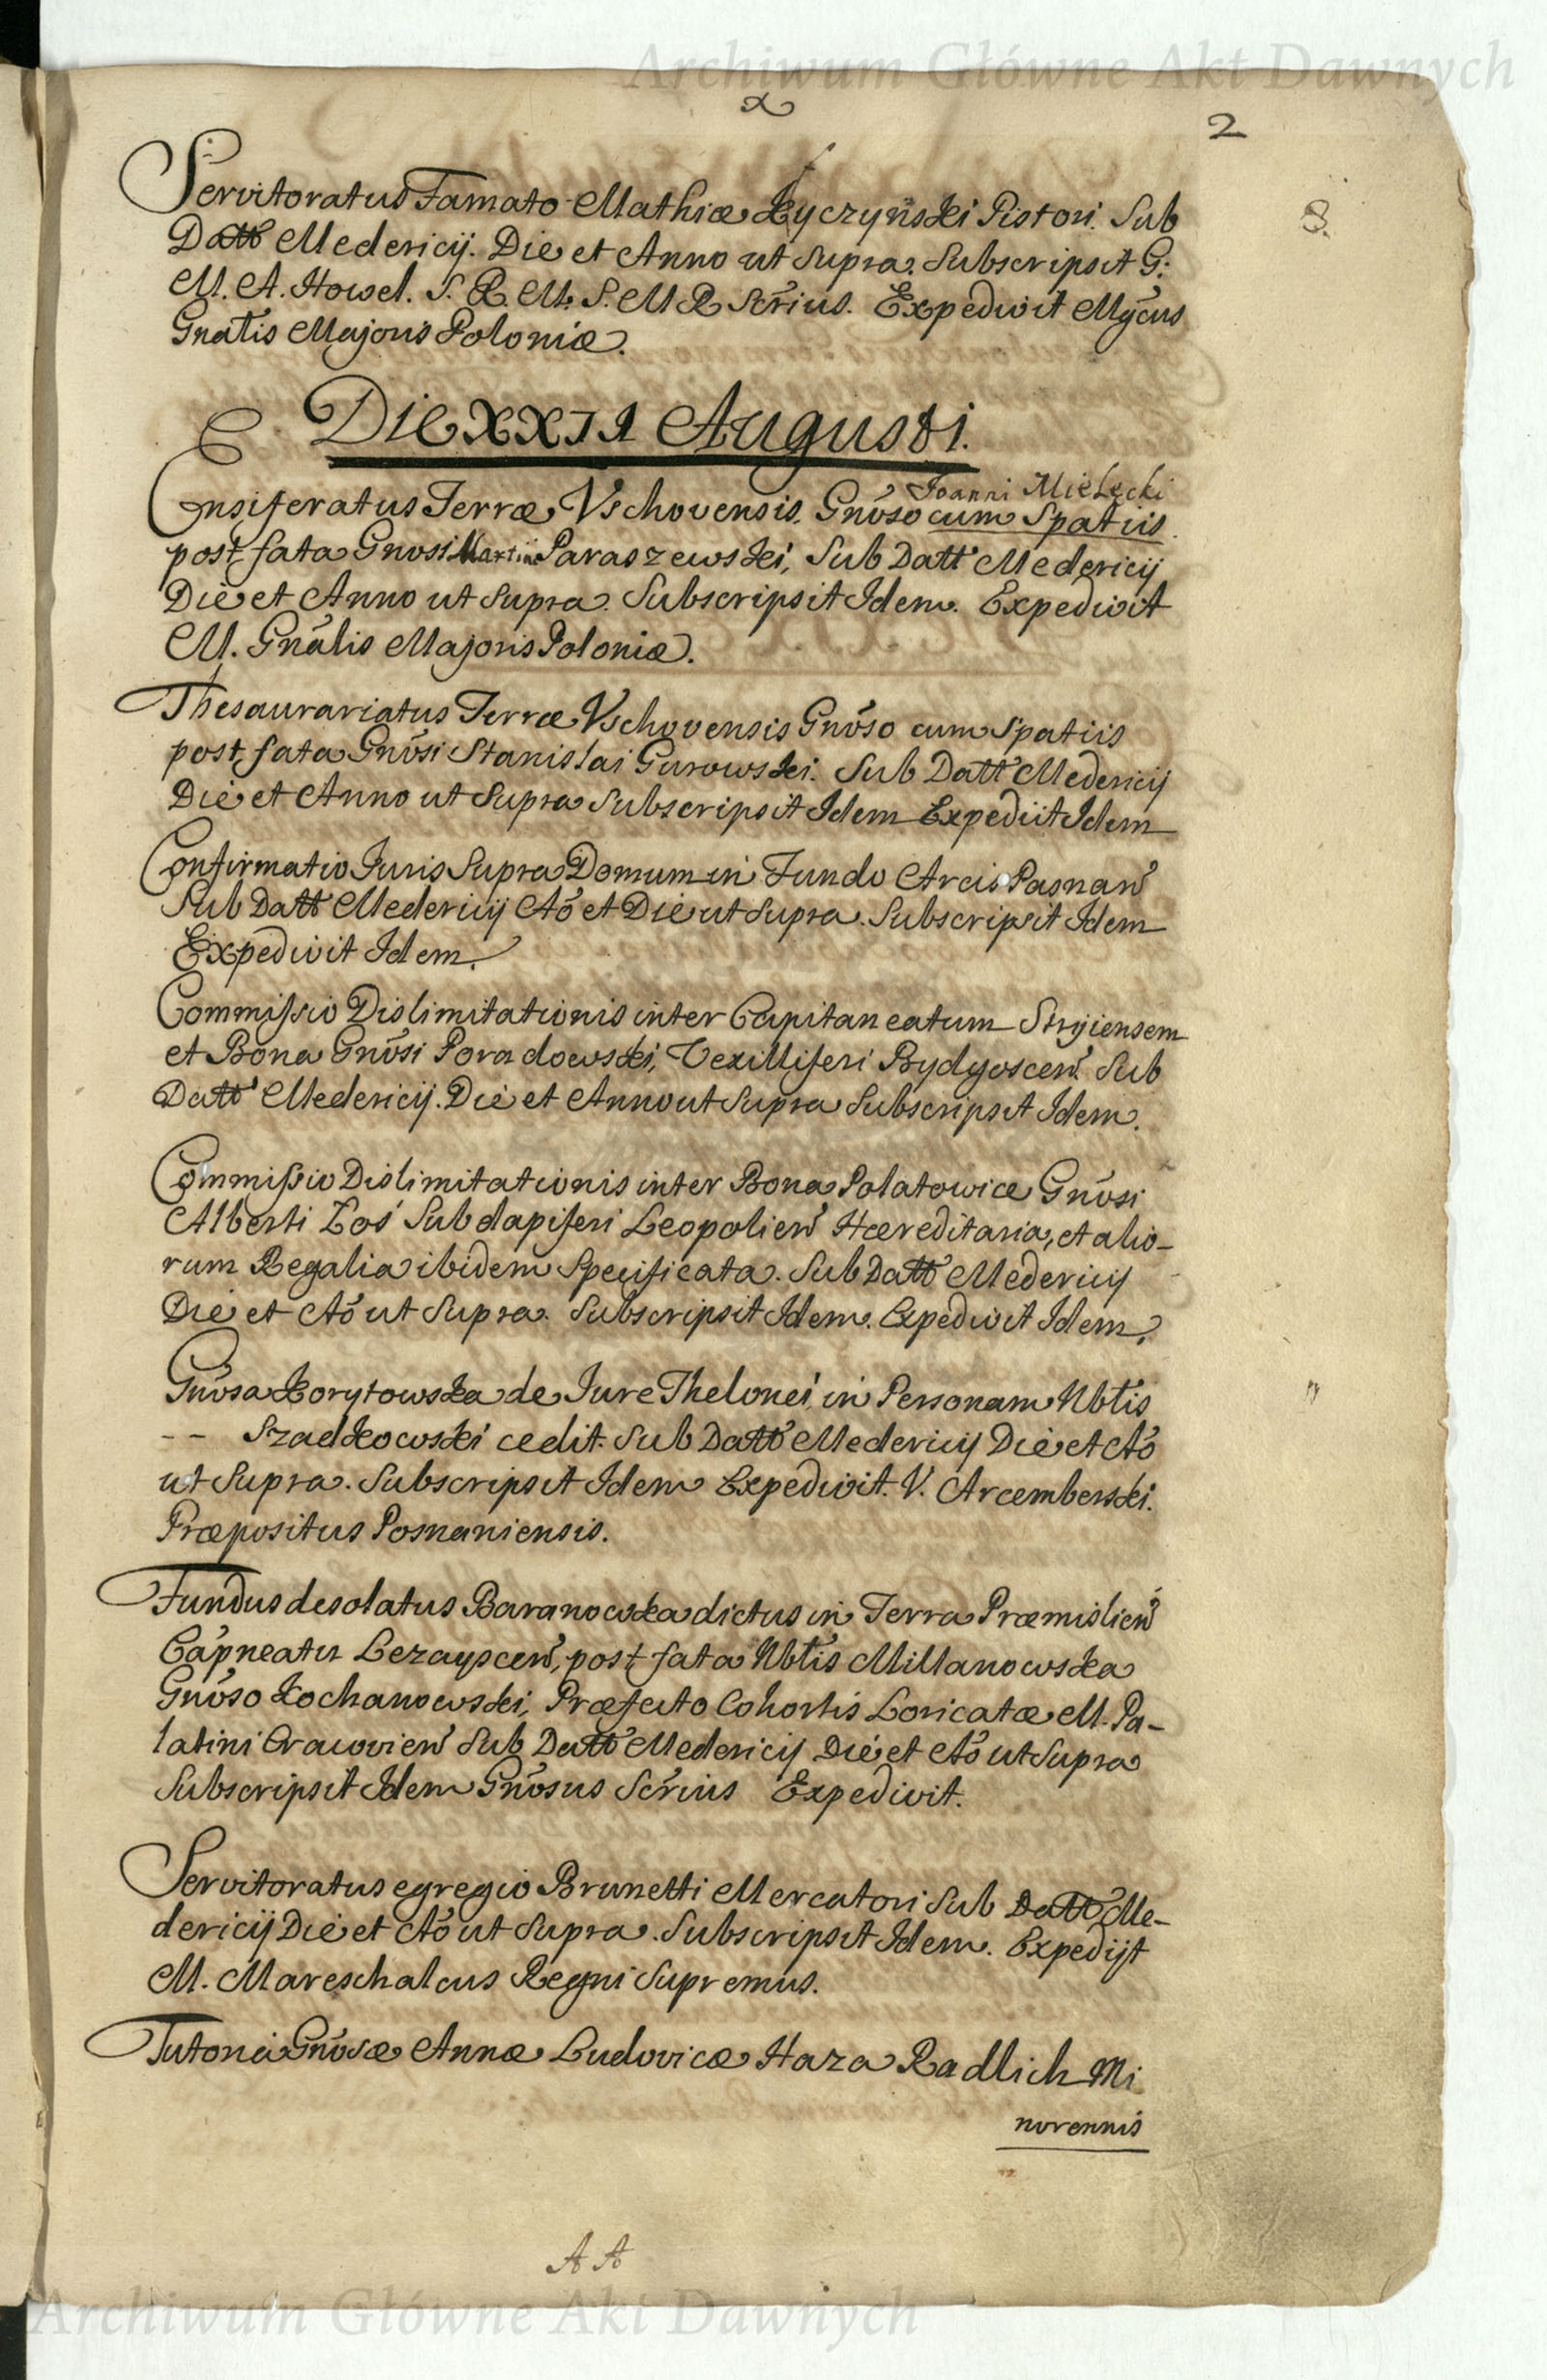 Archiwum Główne Akt Dawnych
2
8.
Servitoratus Famato Mathiæ Łyczyński Pistori. Sub
Datt Medericij. Die et Anno ut Supra. Subscripsit G:
M. A. Howel. S. R. M. S. M R Scr̃ius. Expedivit Mg̃cus
Gnalis Majoris Poloniæ.
Die XXII Augusti.
Joanni Mielęcki
Ensiferatus Terræ Vschovensis. Gnõso cum Spatiis
post fata Gnosi Martini Paraszewski, Sub Datt Medericij
Die et Anno ut Supra. Subscripsit Idem. Expedivit
M. Gnãlis Majoris Poloniæ.
Thesaurariatus Terræ Vschovensis Gnõso cum Spatiis
post fata Gnõsi Stanislai Gurowski. Sub Datt Medericij
Die et Anno ut Supra Subscripsit Idem Expediit Idem
Confirmatio Juris Supra Domum in Fundo Arcis Pasnaṅ
Sub Datt Medericij Aõ et Die ut Supra. Subscripsit Idem
Expedivit Idem.
Commissio Dislimitationis inter Capitaneatum Stryiensem
et Bona Gnõsi Poradowski, Vexilliferi Bydgosceṅ Sub
Datt Medericij. Die et Anno ut Supra Subscripsit Idem.
Commissio Dislimitationis inter Bona Polatowice Gnõsi
Alberti Łoś Subdapiferi Leopolieṅ Hæreditaria, et alio-
rum Regalia ibidem Specificata. Sub Datt Medericij
Die et Aõ ut Supra. Subscripsit Idem. Expedivit Idem.
Gnõsa Korytowska de Jure Thelonei in Personam Nbtis
-- Szadkowski cedit. Sub Datt Medericij Die et Aõ
ut Supra. Subscripsit Idem Expedivit. V. Arcemberski.
Præpositus Posnaniensis.
Fundus desolatus Baranowska dictus in Terra Præmislieṅ
Cap̃neatu Lezaysceṅ, post fata Nbtis Millanowska
Gnõso Kochanowski, Præfecto Cohortis Loricatæ M. Pa-
latini Cracovieṅ Sub Datt Medericij Die et Aõ ut Supra
Subscripsit Idem Gnõsus Scr̃ius Expedivit.
Servitoratus egregio Brunetti Mercatori Sub Datt Me-
dericij Die et Aõ ut Supra. Subscripsit Idem. Expedijt
M. Mareschalcus Regni Supremus.
Tutoria Gnõsæ Annæ Ludovicæ Haza Radlich Mi
norennis
AA
Archiwum Główne Akt Dawnych